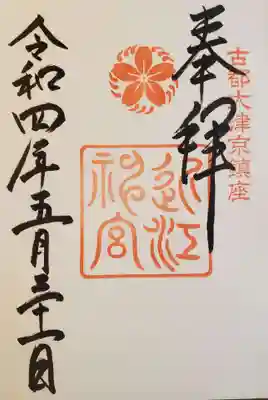 古都大津京鎮座
奉拝
近江
神宮
令和四年五月三十一日